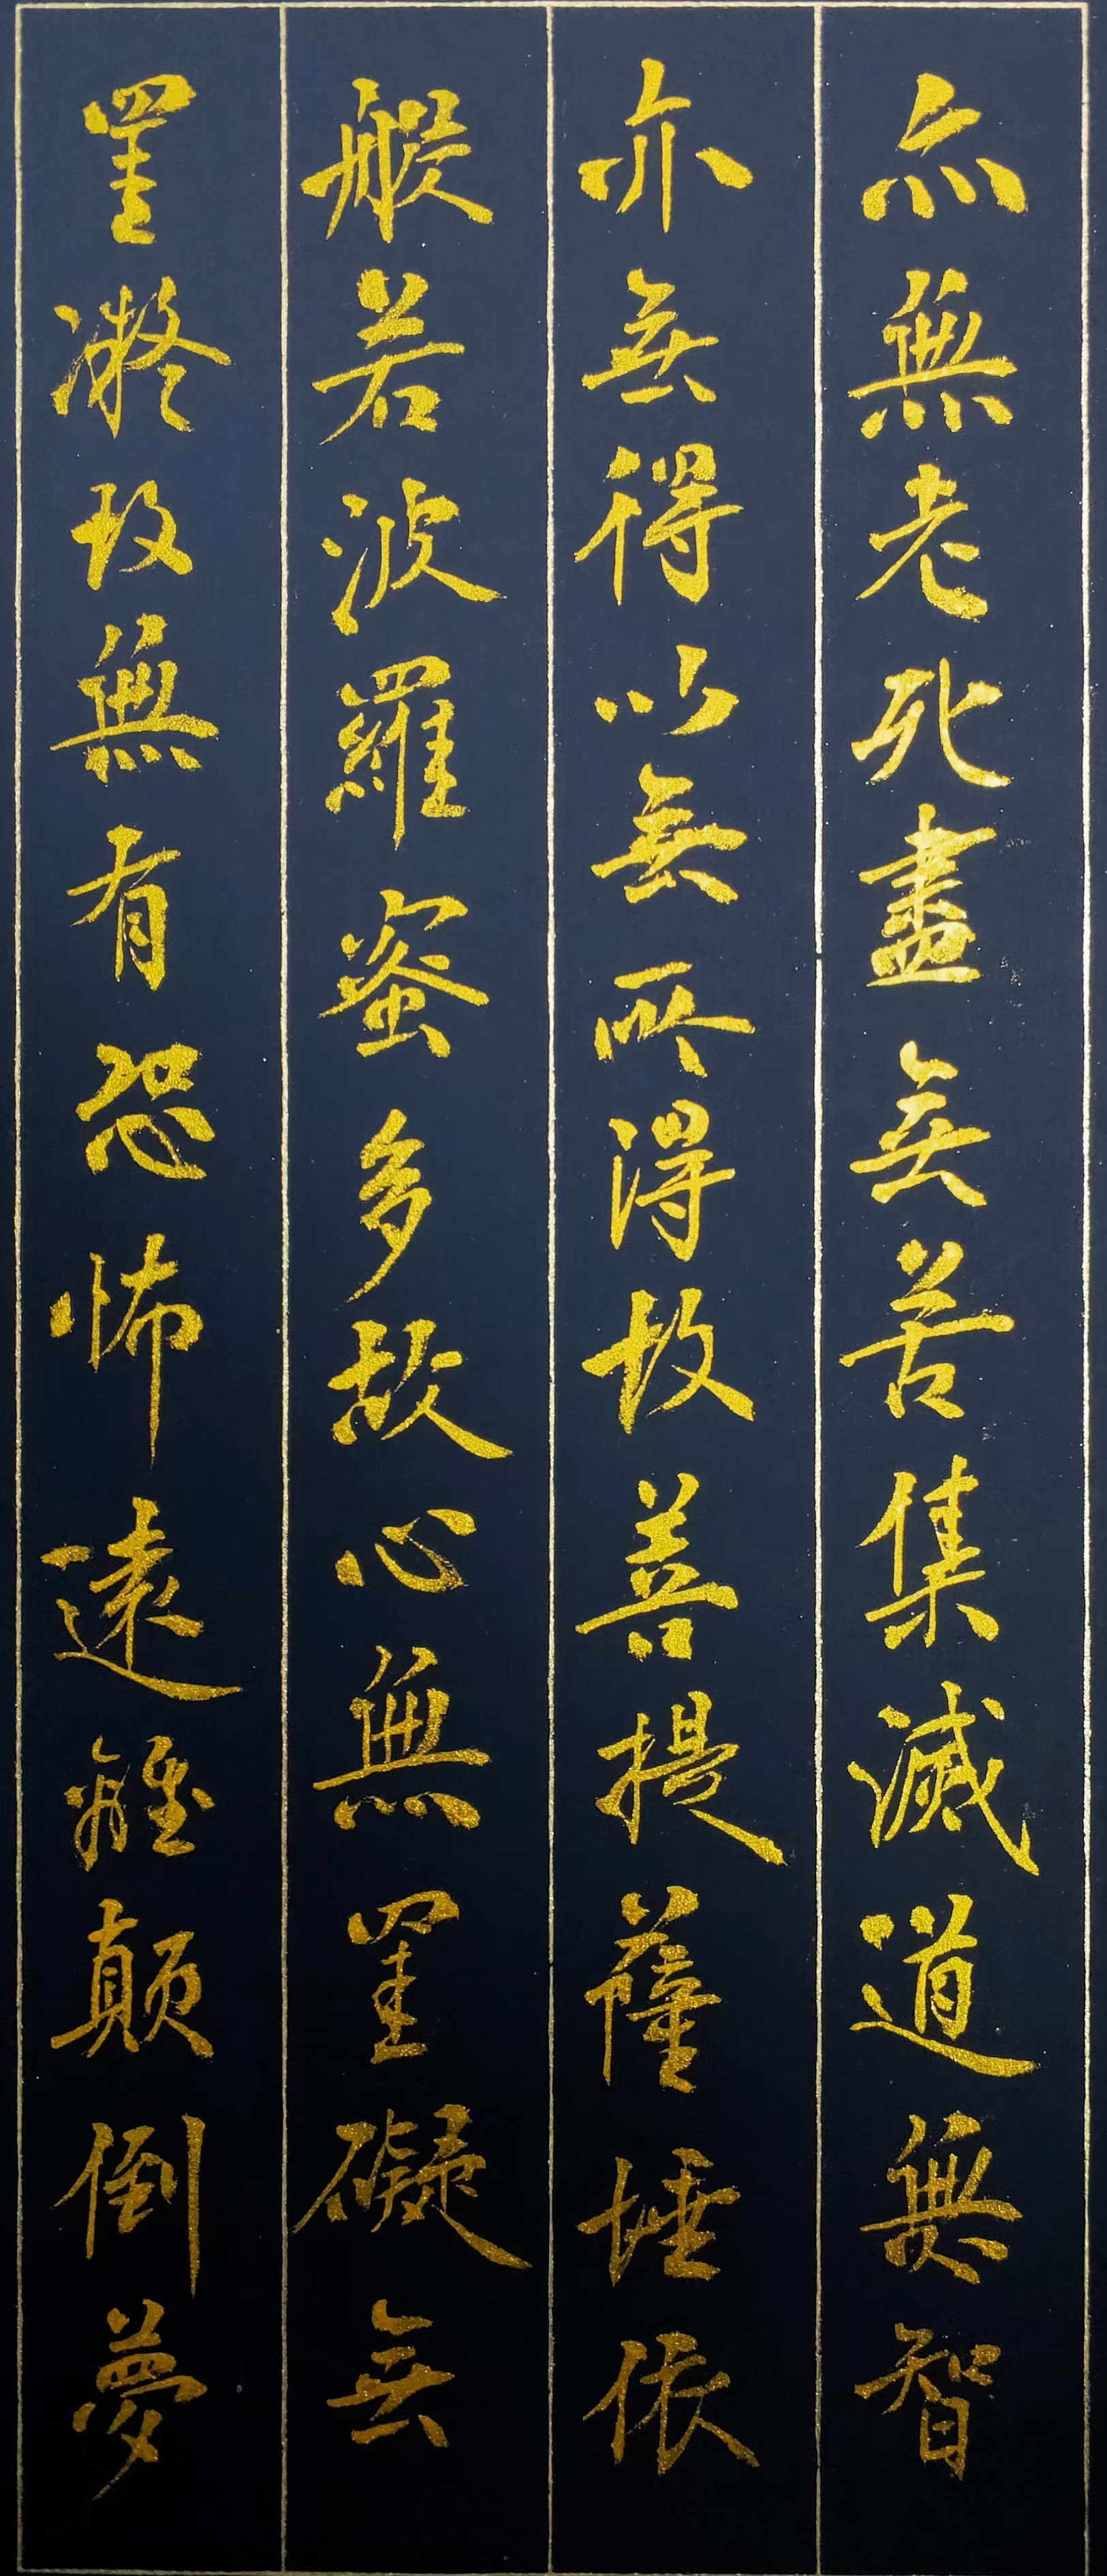 亦無老死盡無苦集滅道無智
亦無得以無所得故菩提薩埵依
般若波羅蜜多故心無罣礙無
罣凝故無有恐怖遠離顛倒夢